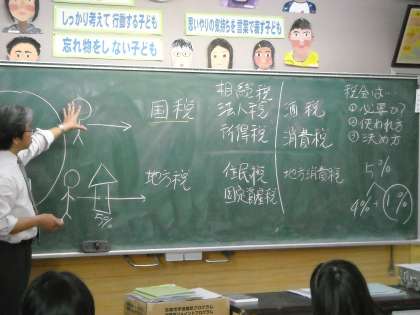 しっかり考えて行動する子ども
忘れ物をしない子ども
思いやりの気持ちを言葉で表す子ども
国税
相続税
法人税
所得税
酒税
消費税
地方税
住民税
固定資産税
地方消費税
5%
税金は…
①必要か?
②使われ方
③決め方
5%
4%
1%